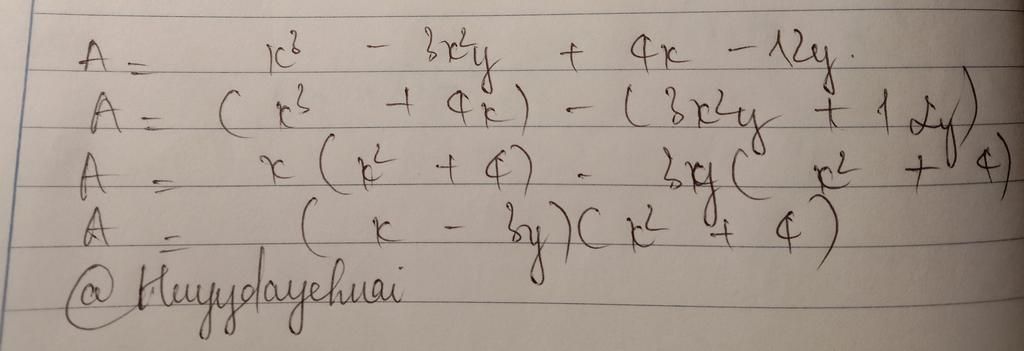 A = x³ - 3x²y + 4x - 12y.
A = (x³ + 4x) - (3x²y + 12y)
A = x(x² + 4) - 3xy(x² + 4)
A = (x - 3y)(x² + 4)
@Huyydayehuai